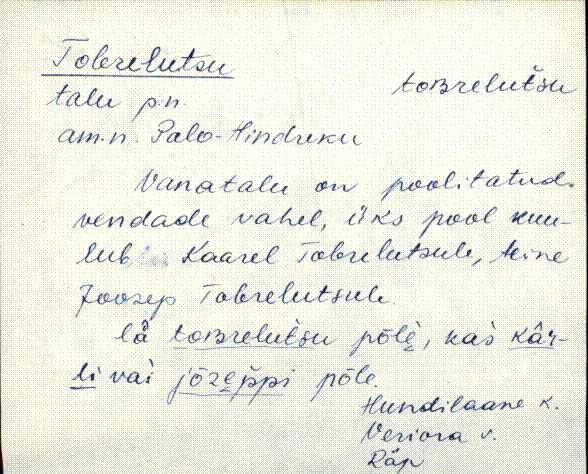 Tobrelutsu
toʙrelut̀su
talu p.n.
am.n. Palo-Hindreku
Vanatalu on poolitatud
vendade vahel, üks pool kuu-
lub Kaarel Tobrelutsule, teine
Joosep Tobrelutsule.
lǟ toʙrelut̀su põlę̀, kas̀ kâr-
li vai jõzep̀pi põle.
Hundilaane k.
Veriora v.
Räp